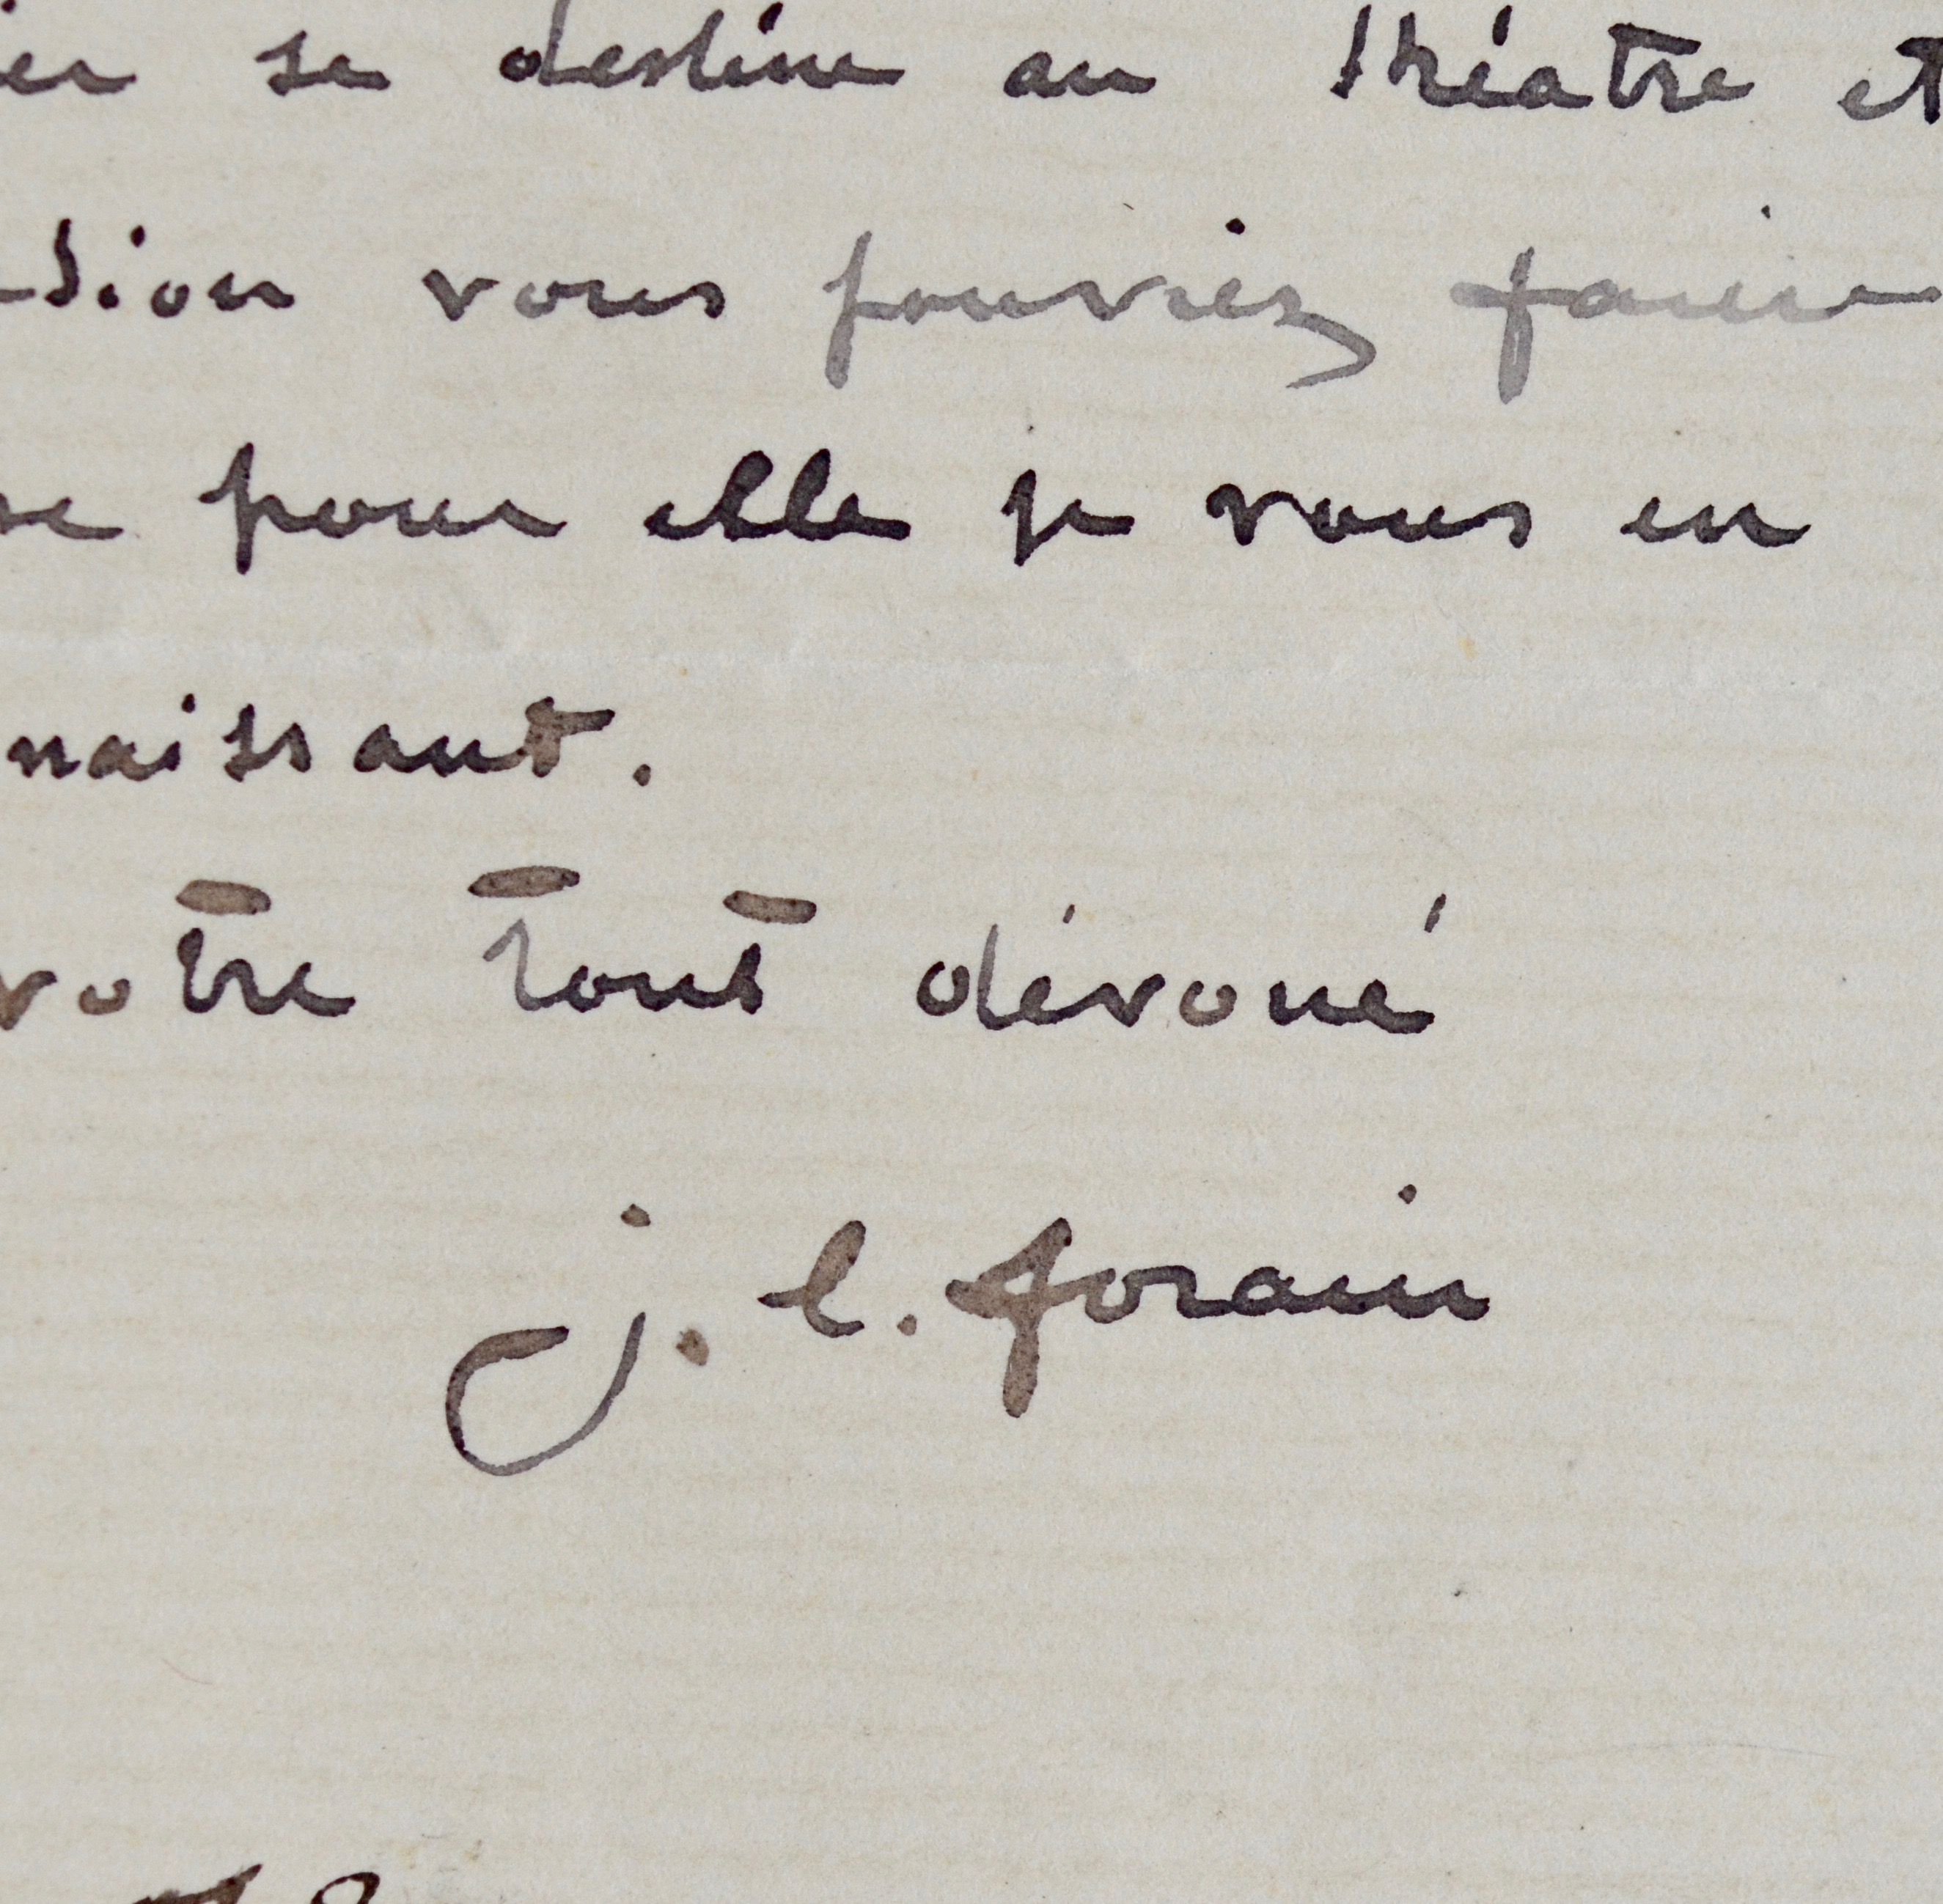 er se destine au théatre et
sion vous pouviez faire
se pour elle je vous en
naissant.
votre tout dévoué
j. l. forain